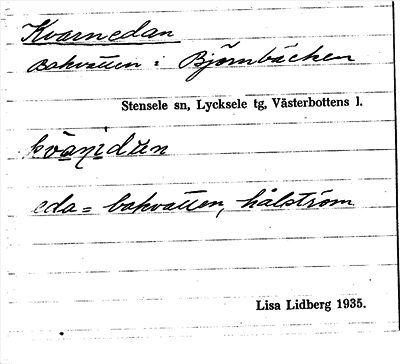 Kvarnedan
bakvatten i Björnbäcken
Stensele sn, Lycksele tg, Västerbottens l.
eda = bakvatten, hålström
Lisa Lidberg 1935.